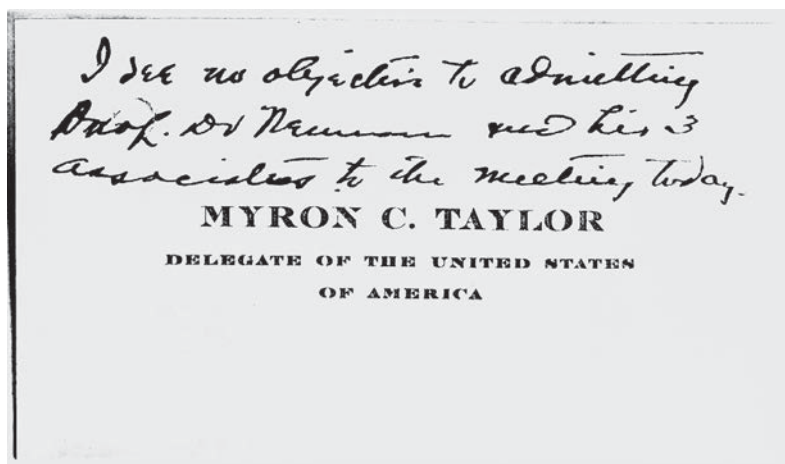 I see no objection to admitting
Prof. Dr Neumann and his 3
associates to the meeting today.
MYRON C. TAYLOR
DELEGATE OF THE UNITED STATES
OF AMERICA